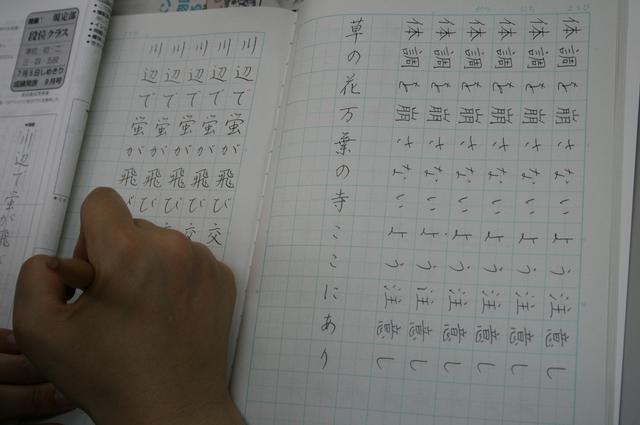 体調を崩さないよう注意し
体調を崩さないよう注意し
体調を崩さないよう注意し
体調を崩さないよう注意し
体調を崩さないよう注意し
体調を崩さないよう注意し
草の花万葉の寺ここにあり
川辺で蛍が飛び交
川辺で蛍が飛び交
川辺で蛍が飛び交
川辺で蛍が飛び
川辺で蛍が飛び
規定部
段位クラス
7月5日しめきり
成績発表 9月号
川辺で蛍が飛